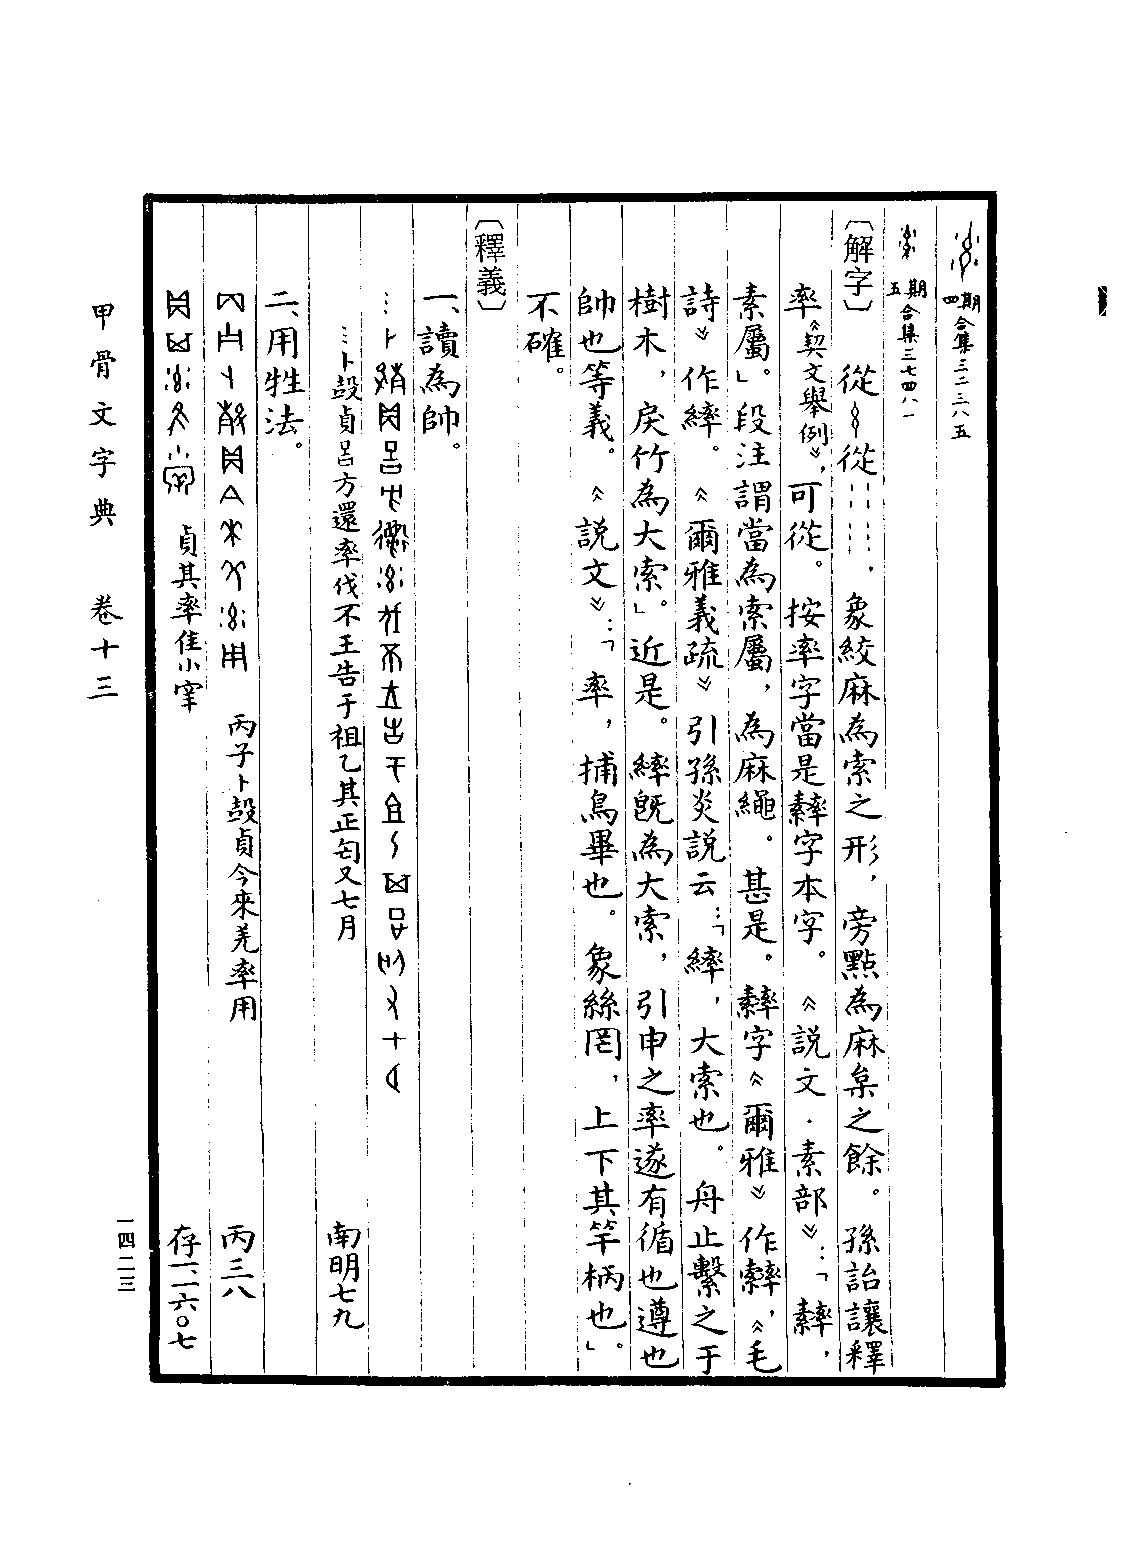 四期 合集三二三八五
五期 合集三七四八一
〔解字〕 從 從 ，象絞麻為索之形，旁點為麻枲之餘。孫詒讓釋
率《契文舉例》，可從。按率字當是䋤字本字。《説文·素部》：「䋤，
素屬」。段注謂當為索屬，為麻繩。甚是。䋤字《爾雅》作，《毛
詩》作繂。《爾雅義疏》引孫炎説云：「繂，大索也。舟止繫之于
樹木，戾竹為大索」。近是。繂既為大索，引申之率遂有循也遵也
帥也等義。《説文》：「率，捕鳥畢也。象絲罔，上下其竿柄也」。
不確。
〔釋義〕
一、讀為帥。
…卜㱿貞𠮷方還率伐不王告于祖乙其正匄又七月 南明七九
二、用牲法。
丙子卜㱿貞今來羌率用 丙三八
貞其率隹小𫳅 存一·一六〇七
甲骨文字典 卷十三
一四二三